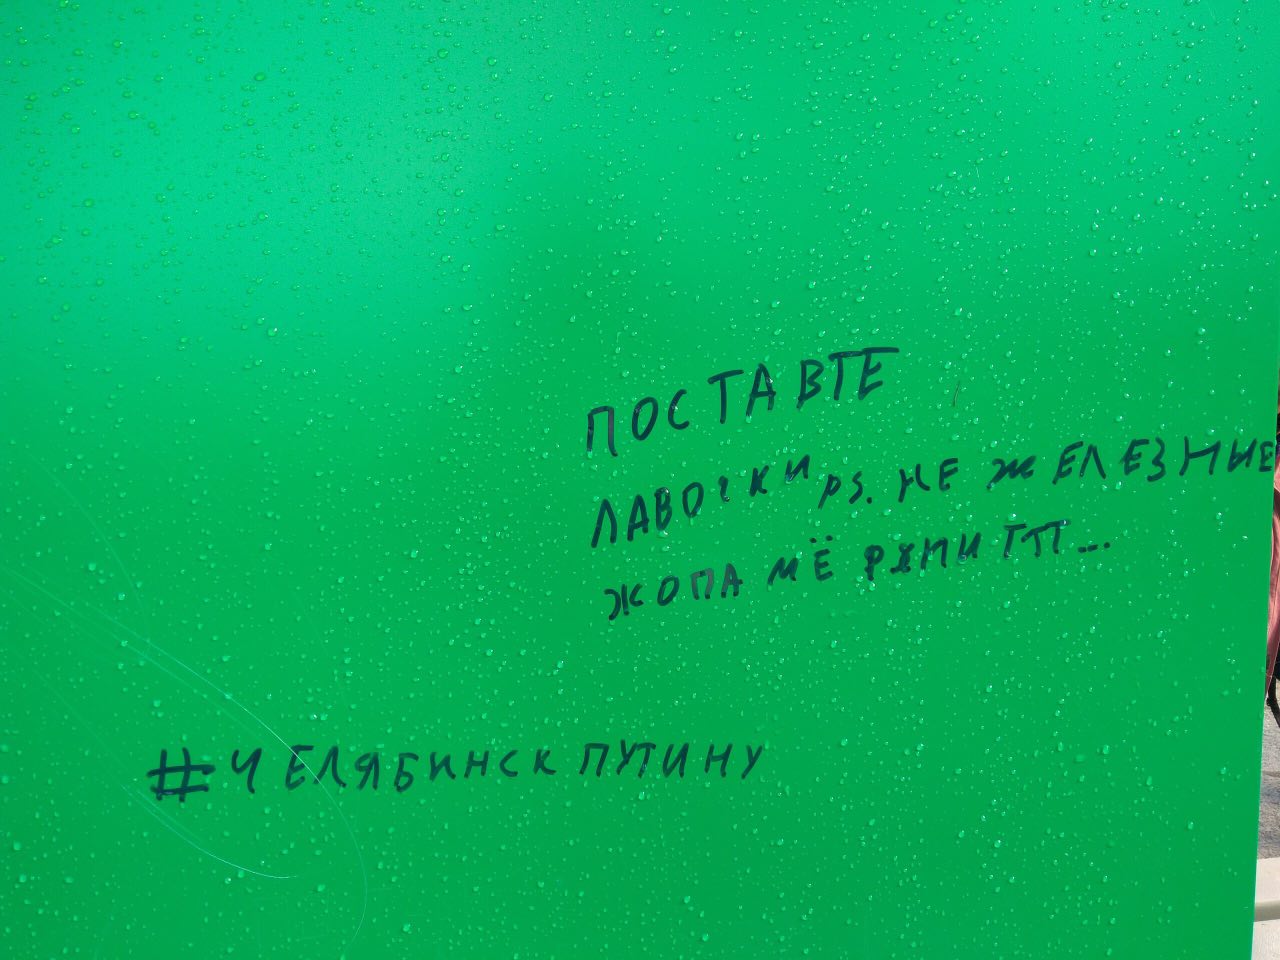 ПОСТАВТЕ
ЛАВОЧКИ PS. НЕ ЖЕЛЕЗНЫЕ
ЖОПА МЁ
#ЧЕЛЯБИНСКПУТИНУ